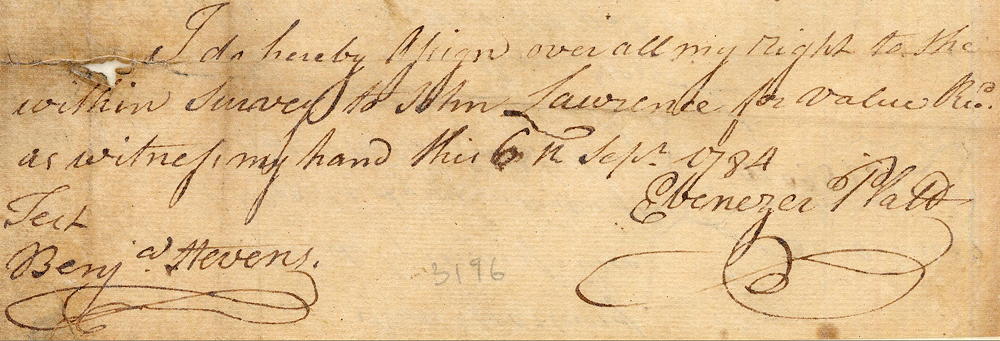 I do hereby Assign over all my right to the
within Survey to John Lawrence for value Recd.
as witness my hand this 6th Sept. 1784
Ebenezer Platt
Test
Benja Stevens.
3196